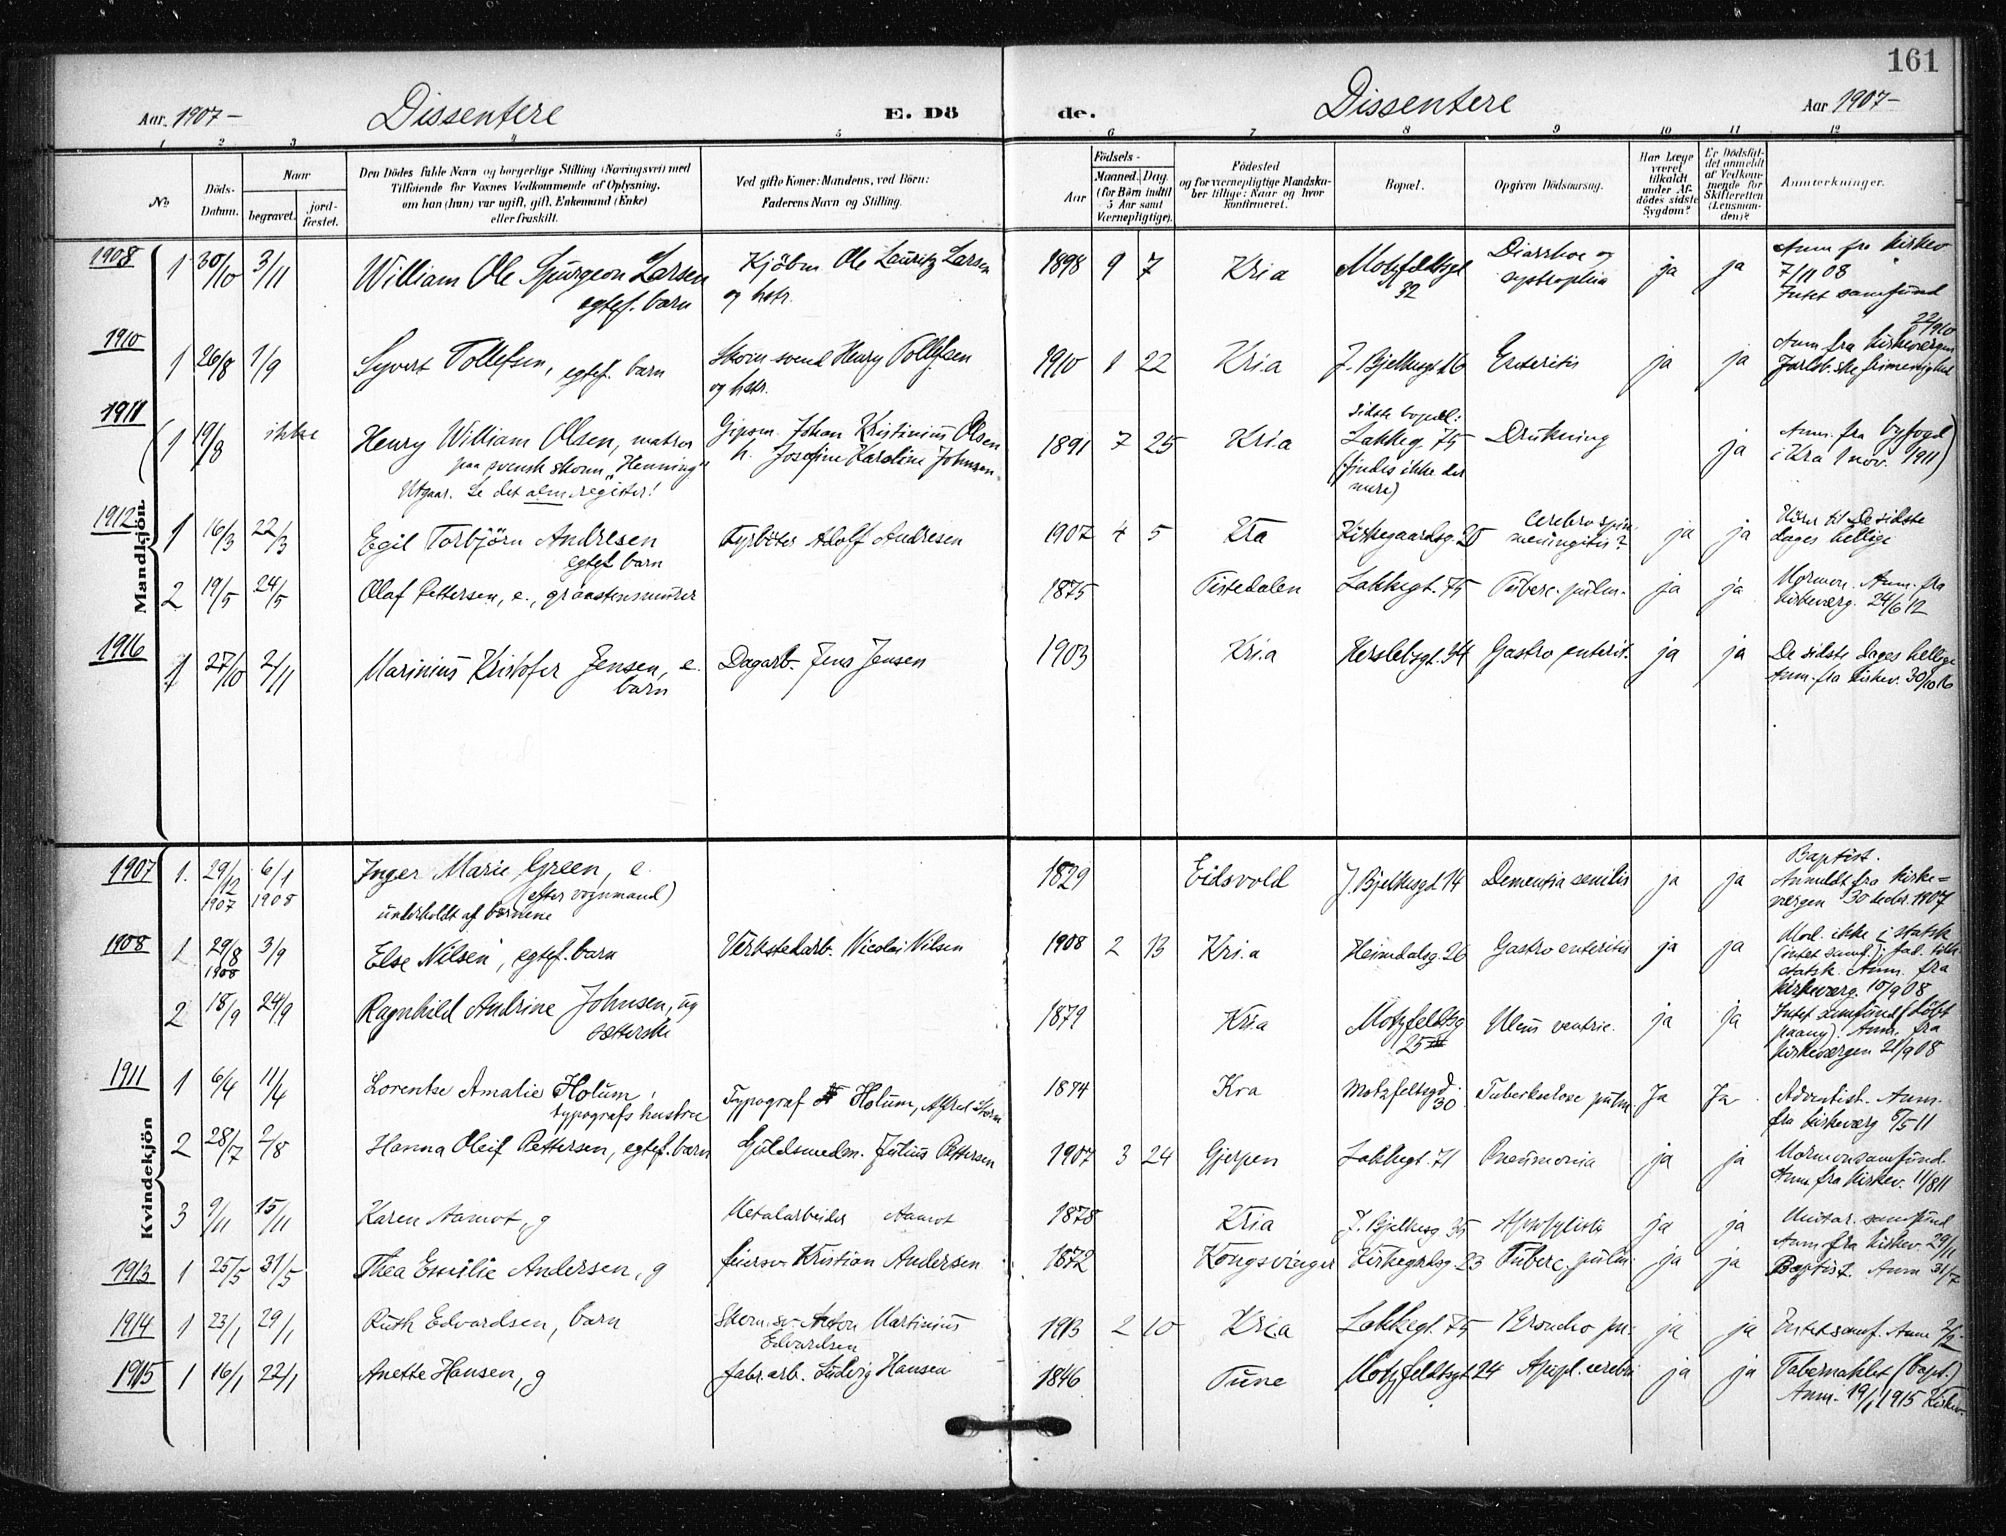 161
Aar. 1907- Dissentere E. Dö de. Dissentere Aar 1907-
1 2 3 4 5 6 7 8 9 10 11 12
No
Döds-Datum.
Naar
begravet. jord-fæstet.
Den Dödes fulde Navn og borgerlige Stilling (Næringsvei) med
Tilföiende for Voxnes Vedkommende af Oplysning,
om han (hun) var ugift, gift, Enkemand (Enke)
eller fraskilt.
Ved gifte Koner: Mandens, ved Börn:
Faderens Navn og Stilling.
Födsels-
Aar Maaned. Dag.
(for Börn indtil
5 Aar samt
Værnepligtige).
Födested
og for værnepligtige Mandska-
ber tillige: Naar og hvor
konfirmeret.
Bopæl.
Opgiven Dödsaarsag.
Har Læge
været
tilkaldt
under Af-
dödes sidste
Sygdom?
Er Dödsfal-
det anmeldt
af Vedkom-
mende for
Skifteretten
(Lensman-
den)?
Anmærkninger.
Mandkjön
1908
1 30/10 3/11 William Ole Spurgeon Larsen Kjöbm Ole Lauritz Larsen 1898 9 7 Kria Motzfeldtsgt Diarrhoe og ja ja Anm fra kirkev
egtef. barn og hstr. 32 7/11 08
Intet samfund
1910
1 26/8 1/9 Syvert Tollefsen, egtef. barn Skom. svend Henry Tollefsen 1910 1 22 Kria J. Bjelkesgt 16 Enteritis ja ja Anm. fra kirkevergen
og hstr. frimenighed
1911
(1 19/8 ikke Henry William Olsen, matros Gipsm. Johan Kristinius Olsen 1891 7 25 Kria sidste bopæl: Drukning ja Anm. fra byfogd
paa svensk skonn. "Henning" h. Josefine Karoline Johnsen Lakkeg. 75 i Kra 1 nov. 1911)
Utgaar. Se det alm. register! (findes ikke der
mere)
1912
1 16/3 22/3 Egil Torbjörn Andresen Fyrböter Adolf Andresen 1907 4 5 Kra Kirkegaardsg. 25 Cerebrospin. ja ja Hörer til De sidste
egtef. barn meningitis? dages hellige
2 19/5 24/5 Olaf Pettersen, e., graastensmurer 1875 Tistedalen Lakkegt. 75 Tuberc. pulm. ja ja Mormon. Anm. fra
kirkeverg. 24/6 12
1916
1 27/10 2/11 Marinius Kristofer Jensen, e. Dagarb. Jens Jensen 1903 Kria Herslebsgt. Gastro enterit. ja ja De sidste dages hellige
barn Anm. fra kirkev. 30/10 16
Kvindekjön
1907
1. 29/12 1907 6/1 1908 Inger Marie Green, e. 1829 Eidsvold J. Bjelkesgd 14 Dementia senilis ja ja Baptist.
efter vognmand) Anmeldt fra kirke-
underholdt af börnene vergen 30 decbr. 1907
1908
1 29/8 1908 3/9 Else Nilsen, egtef. barn Verkstedarb. Nicolai Nilsen 1908 2 13 Kria Heimdalsg. 26 Gastroenteritis ja ja Mod. ikke i statsk
(intet samf.); fad.
statsk. Anm. fra
kirkeverg. 10/9 08
2 18/9 24/9 Ragnhild Andrine Johnsen, ug 1879 Kria Motzfeldtsg Ulcus ventric. ja ja Intet samfund (döbt
25 paany). Anm. fra
kirkevergen 21/9 08
1911
1 6/4 11/4 Lorentse Amalie Holum, Typograf Holum, Alfred 1874 Kra Motzfeltsgd. Tuberkulose pulm Ja Ja Adventist. Anm.
typografs hustru 30 fra kirkeverg 6/5 11
2 28/7 2/8 Hanna Oleif Pettersen, egtef. barn Guldsmedm. Julius Pettersen 1907 3 24 Gjerpen Lakkegt. 71 Pneumonia ja ja Mormonsamfund.
Anm fra kirkev. 11/8 11
3 9/11 15/11 Karen Aamot, g Metalarbeider Aamot 1878 Kria J. Bjelkesg 35 ja ja Unitar. samfund
Anm fra kirkev. 29/11
1913 1 25/5 31/5 Thea Emilie Andersen, g feiersv Kristian Andersen 1872 Kongsvinger Kirkegaardsg. 23 Tuberc. pulm. ja ja Baptist. Anm 31/7
1914 1 23/1 29/1 Ruth Edvardsen, barn Skom. sv. Anton Martinius 1913 2 10 Kria Lakkegt. 75 Broncho pn. ja ja Intet samf. Anm 2/2
Edvardsen
1915 1 16/1 22/1 Anette Hansen, g fabr. arb. Ludvig Hansen 1846 Tune Motzfeldtsgt 24 Apopl. cerebri ja ja Tabernaklet (bapt.)
Anm. 19/1 1915 Kirkev.